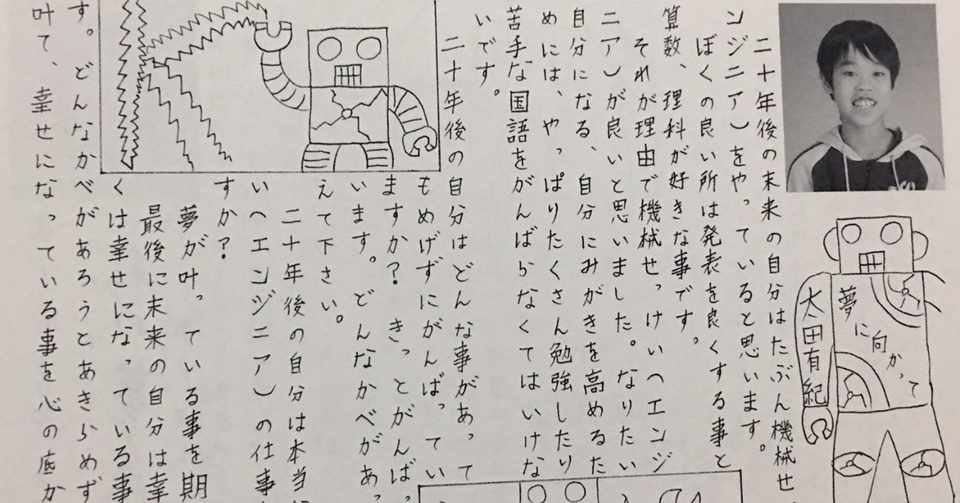 夢に向かって
太田有紀
二十年後の未来の自分はたぶん機械せ
ンジニア)をやっていると思います。
ぼくの良い所は発表を良くする事と
算数、理科が好きな事です。
それが理由で機械せっけい(エンジ
ニア)が良いと思いました。なりたい
自分になる、自分にみがきを高めるた
めには、やっぱりたくさん勉強したり
苦手な国語をがんばらなくてはいけな
いです。
二十年後の自分はどんな事があって
もめげずにがんばってい
ますか?きっとがんば
います。どんなかべがあ
えて下さい。
二十年後の自分は本当
い(エンジニア)の仕事
すか?
夢が叶っている事を期
最後に未来の自分は幸
くは幸せになっている事
す。どんなかべがあろうとあきらめず
叶て、幸せになっている事を心の底か